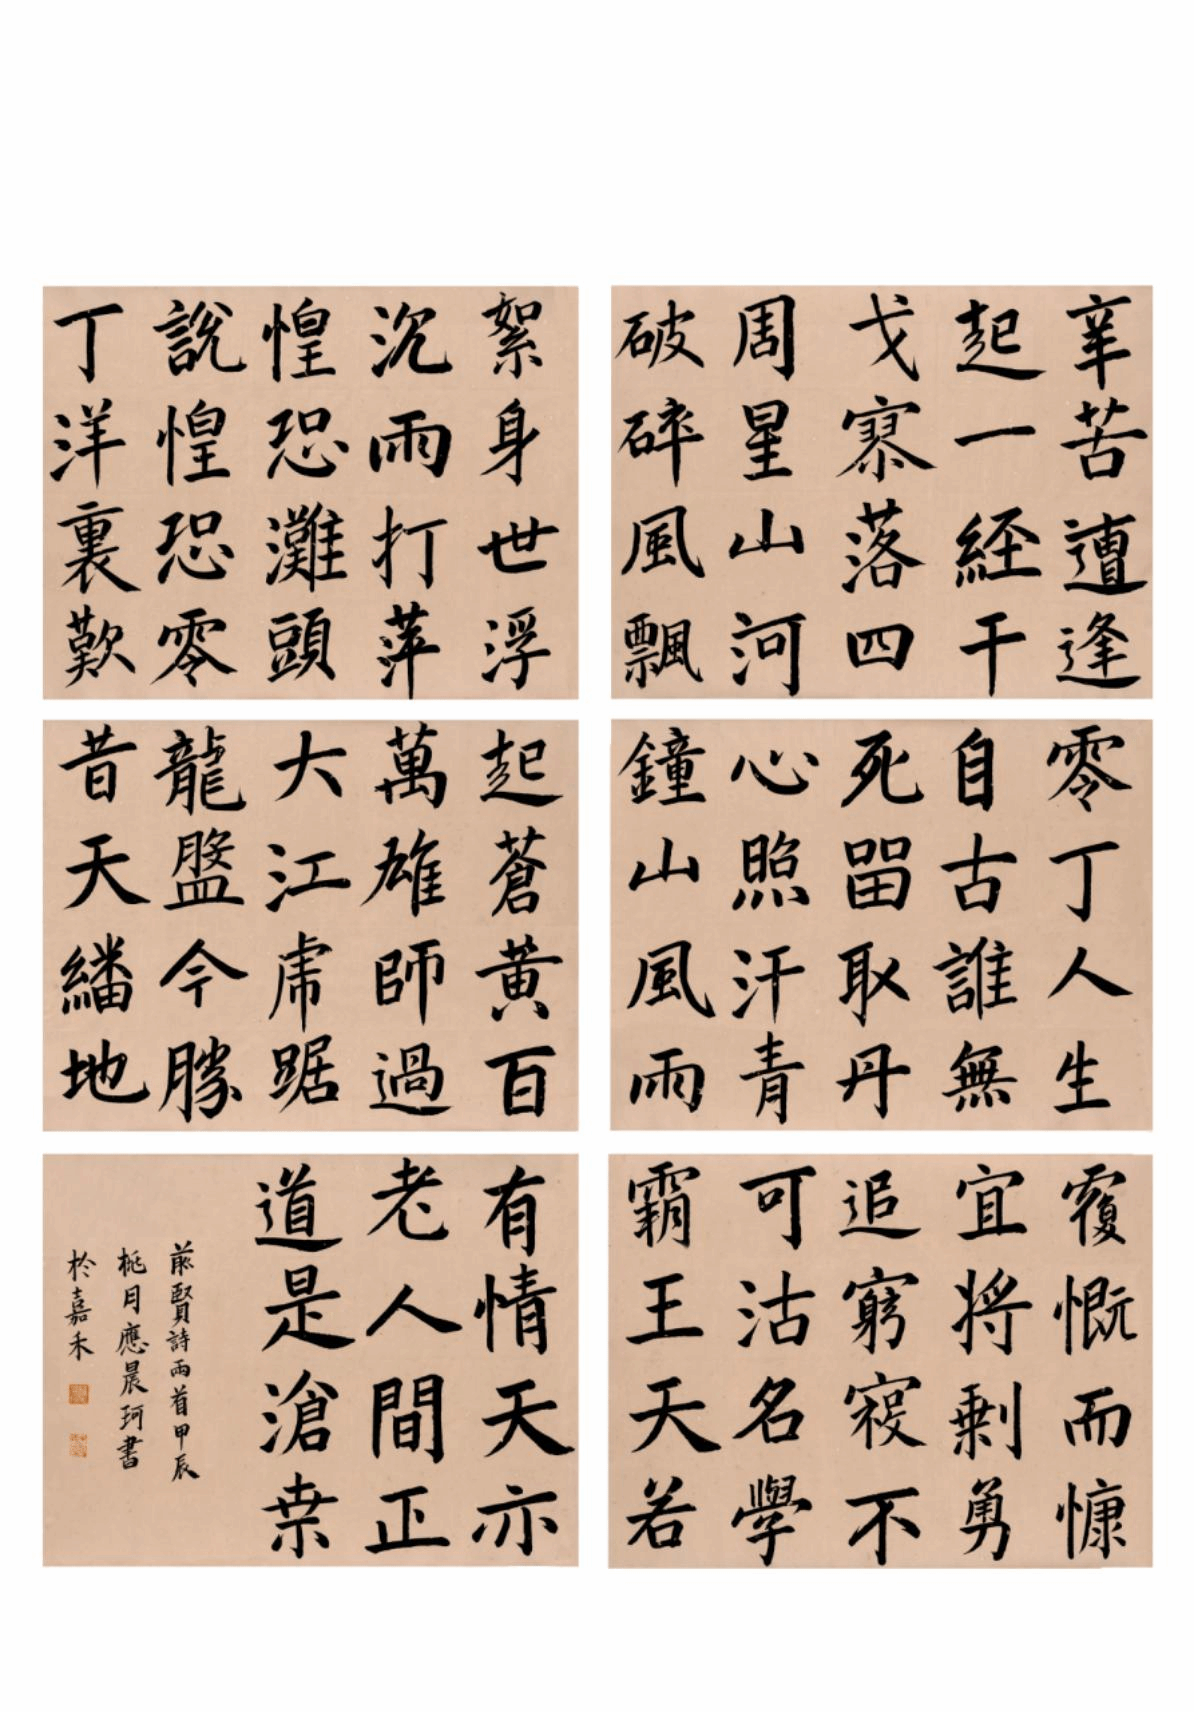 辛苦遭逢
起一経干
戈寥落四
周星山河
破碎風飄
絮身世浮
沉雨打萍
惶恐灘頭
說惶恐零
丁洋裏歎
零丁人生
自古誰無
死留取丹
心照汗青
鐘山風雨
起蒼黃百
萬雄師過
大江虎踞
龍盤今勝
昔天繙地
覆慨而慷
宜將剩勇
追窮寇不
可沽名學
霸王天若
有情天亦
老人間正
道是滄桑
前賢詩兩首甲辰
桃月應晨珂書
於嘉禾